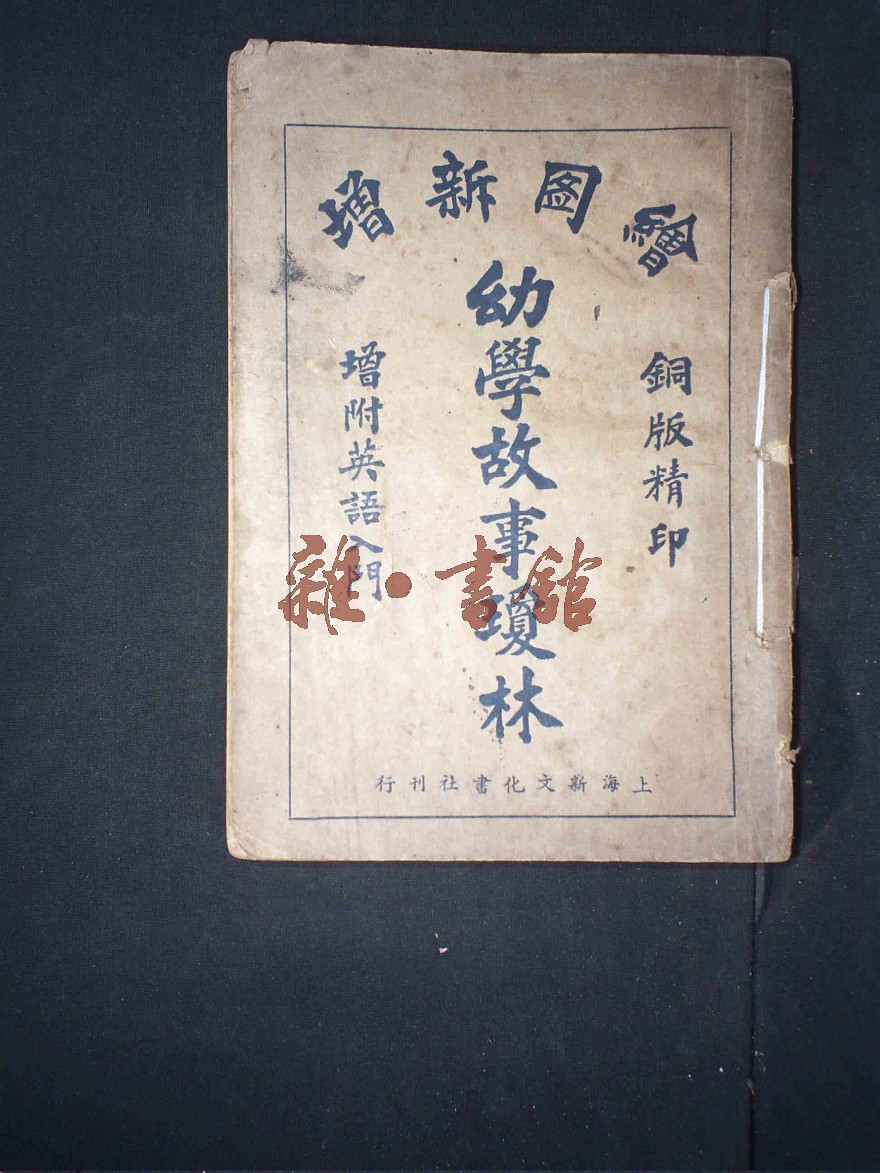 繪圖新增
銅版精印
幼學故事瓊林
增附英語入門
上海新文化書社刊行
雜·書館